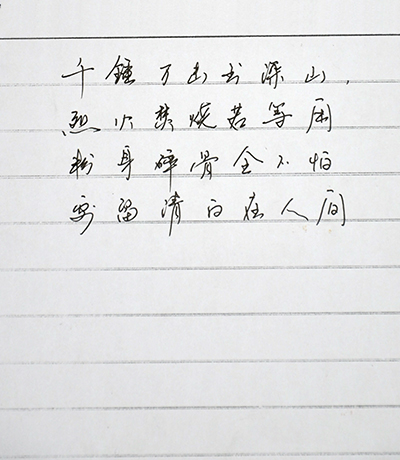 千錘万击出深山，
烈火焚烧若等闲
粉身碎骨全不怕
要留清白在人间